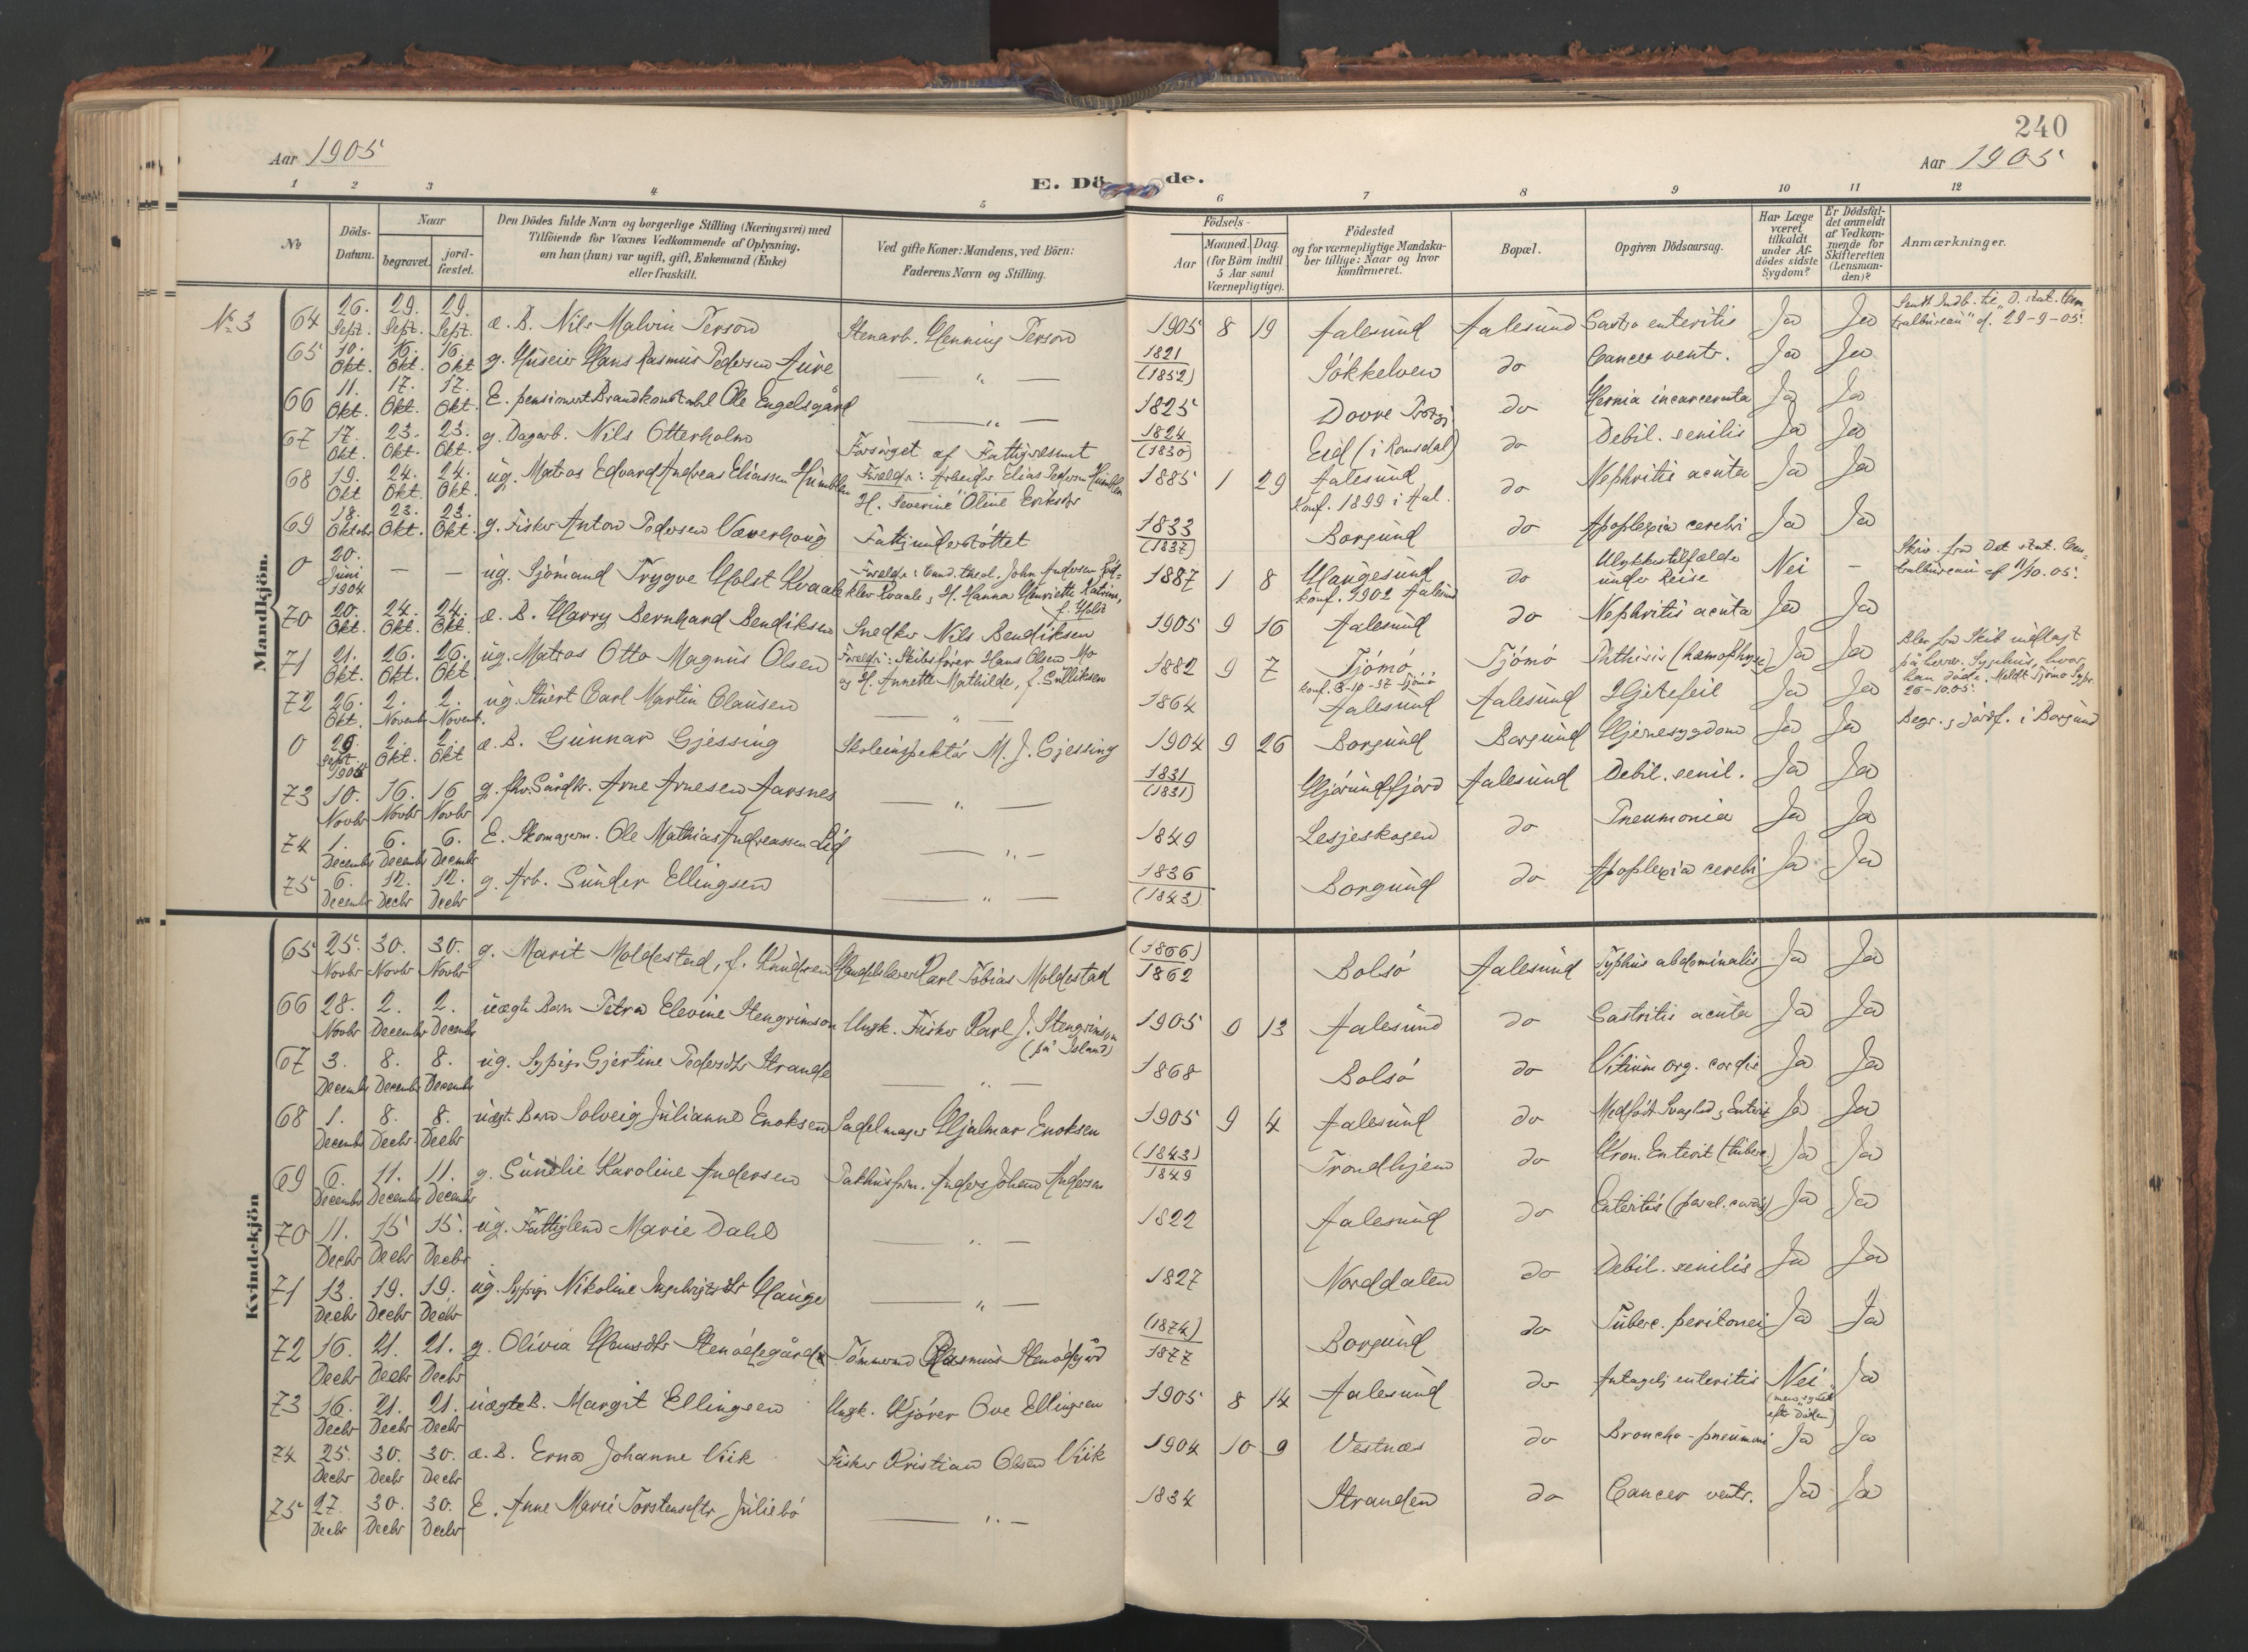 240
Aar 1905
Aar 1905
E. Dö de.
1 2 3 4 5 6 7 8 9 10 11 12
№
Döds-
Datum.
Naar
begravet.
jord-
fæstet.
Den Dödes fulde Navn og borgerlige Stilling (Næringsvei) med
Tilföiende for Voxnes Vedkommende af Oplysning,
om han (hun) var ugift, gift, Enkemand (Enke)
eller fraskilt.
Ved gifte Koner: Mandens, ved Börn:
Faderens Navn og Stilling.
Födsels-
Aar
Maaned. Dag.
(for Börn indtil
5 Aar samt
Værnepligtige).
Födested
og for værnepligtige Mandska-
ber tillige: Naar og hvor
konfirmeret.
Bopæl.
Opgiven Dödsaarsag.
Har Læge
været
tilkaldt
under Af-
dödes sidste
Sygdom?
Er Dödsfal-
det anmeldt
af Vedkom-
mende for
Skifteretten
(Lensman-
den)?
Anmærkninger.
Mandkjön.
No 3 64 26. Sept. 29. Sept. 29. Sept. æ. B. Nils Malvin Person Stenarb. Henning Person 1905 8 19 Aalesund Aalesund Gastro enteritis Ja Ja Sendt Indb. til "D. stat. Cen
tralbureau" d. 29-9-05.
65 10. Okt. 16. Okt. 16. Okt g. Huseier Hans Rasmus Pedersen Aure — " — 1821 (1852) Sökkelven do Cancer ventr. Ja Ja
66 11. Okt. 17. Okt. 17. Okt. E. pensionert Brandkonstabel Ole Engelsgård — " — 1825 Dovre Prstgj do Hernia incarcerata Ja Ja
67 17. Okt. 23. Okt. 23. Okt. g. Dagarb. Nils Otterholm Forsörget af Fattigvesenet 1824 (1830) Eid (i Romsdal) do Debil. senilis Ja Ja
68 19. Okt 24. Okt. 24. Okt. ug. Matros Edvard Andreas Eliassen Humblen Forældr: Arbeider Elias Pedersen Humblen
H. Severine Oline Eriksdtr 1885 1 29 Aalesund
Konf. 1899 i Aal. do Nephritis acuta Ja Ja
69 18. Oktobr 23. Okt. 23. Okt. g. Fisker Anton Pedersen Væverhoug Fattigunderstöttet 1833 (1837) Borgund do Apoplexia cerebri Ja Ja
0 20. Juni 1904 — — ug. Sjömand Trygve Holst Kvaale Forældr: Cand. theol. John Andersen
Kvaale, H. Hanna Henriette Katrine,
f. Holst 1887 1 8 Haugesund
konf. 1902 Aalesund do Ulykkestilfælde
under Reise Nei — Skriv. fra Det stat. Cen-
tralbureau af 11/10.05.
70 20. Okt. 24. Okt. 24. Okt. æ. B. Harry Bernhard Bendiksen Snedker Nils Bendiksen 1905 9 16 Aalesund do Nephritis acuta Ja Ja
71 21. Okt. 26. Okt. 26. Okt. ug. Matros Otto Magnus Olsen Forældr: Skibsförer Hans Olsen Mo
og H. Annette Mathilde, f. Gulliksen 1882 9 7 Tjömö
konf. 3-10-97 Tjömö Tjömö Phthisis (hæmophtyse) Ja Ja Blev fra Skib indlagt
på herv. Sygehus, hvor
han döde. Meldt Tjömö
26-10.05.
72 26. Okt. 2. Novemb 2. Novemb. ug. Stuert Carl Martin Clausen — " — 1864 Aalesund Aalesund Hjetefeil Ja Ja
0 29. Sept. 1905 2. Okt. 2. Okt æ. B. Gunnar Gjessing Skoleinspektör M. J. Gjessing 1904 9 26 Borgund Borgund Hjernesygdom Ja Ja Begr. & jordf. i Borgund
73 10. Novbr 16. Novbr 16 Novbr g. fhv. Gårdbr. Arne Arnesen Aarsnes — " — 1831 (1831) Hjörundfjord Aalesund Debil. senil. Ja Ja
74 1. Decembr 6. Decembr 6. Decembr E. Skomagerm. Ole Mathias Andreassen Lid — " — 1849 Lesjeskogen do Pneumonia Ja Ja
75 6. Decembr 12. Decbr 12. Decbr g. Arb. Sunder Ellingsen — " — 1836 (1843) Borgund do Apoplexia cerebri Ja Ja
Kvindekjön
65 25. Novbr 30. Novbr 30. Novbr g. Marit Moldestad, f. Knudsen Handelselever Carl Tobias Moldestad (1866) 1862 Bolsö Aalesund Typhus abdominalis Ja Ja
66 28. Novbr 2. Decembr 2. Decembr uægte Barn Petra Elevine Stengrimson Ungk. Fisker Karl J. Stengrimson
(på Island) 1905 9 13 Aalesund do Gastritis acuta Ja Ja
67 3. Decembr 8. Decembr 8. Decembr ug. Sypige Gjertine Pedersdtr Strande — " — 1868 Bolsö do Vitium org. cordis Ja Ja
68 1. Decembr 8. Decbr 8. Decbr uægt. Barn Solveig Julianne Enoksen Sadelmager Hjalmar Enoksen 1905 9 4 Aalesund do Medfödt Svaghed & Enterit Ja Ja
69 6. Decembr 11. Decembr 11. Decembr g. Karoline Andersen Pakhusfm. Anders Johan Andersen (1843) 1849 Trondhjem do Kron. Enterit (tuberc.) Ja Ja
70 11. Decbr 15 Decbr 15. Decbr. ug. Fattiglem Marie Dahl — " — 1822 Aalesund do Enteritis (paral. cordis) Ja Ja
71 13. Decbr 19. Decbr 19. Decbr ug. Sypige Nikoline Ingebrigtsdtr Hauge — " — 1827 Norddalen do Debil. senilis Ja Ja
72 16. Decbr 21. Decbr 21. Decbr g. Olivia Hansdtr Stenödegårde Tömmermand Rasmus Stenödegård (1874) 1877 Borgund do Tuberc. peritonei Ja Ja
73 16. Decbr 21. Decbr 21. Decbr uægte B. Margit Ellingsen Ungk. Kjörer Ove Ellingsen 1905 8 14 Aalesund do Antagelig enteritis Nei
(men synet
efter Döden) Ja
74 25. Decbr 30. Decbr 30. Decbr æ. B. Erna Johanne Viik Fisker Kristian Olsen Viik 1904 10 9 Vestnæs do Broncho-pneumoni Ja Ja
75 27. Decbr 30. Decbr 30. Decbr E. Anne Marie Torstensdtr Juliebö — " — 1834 Stranden do Cancer ventr. Ja Ja